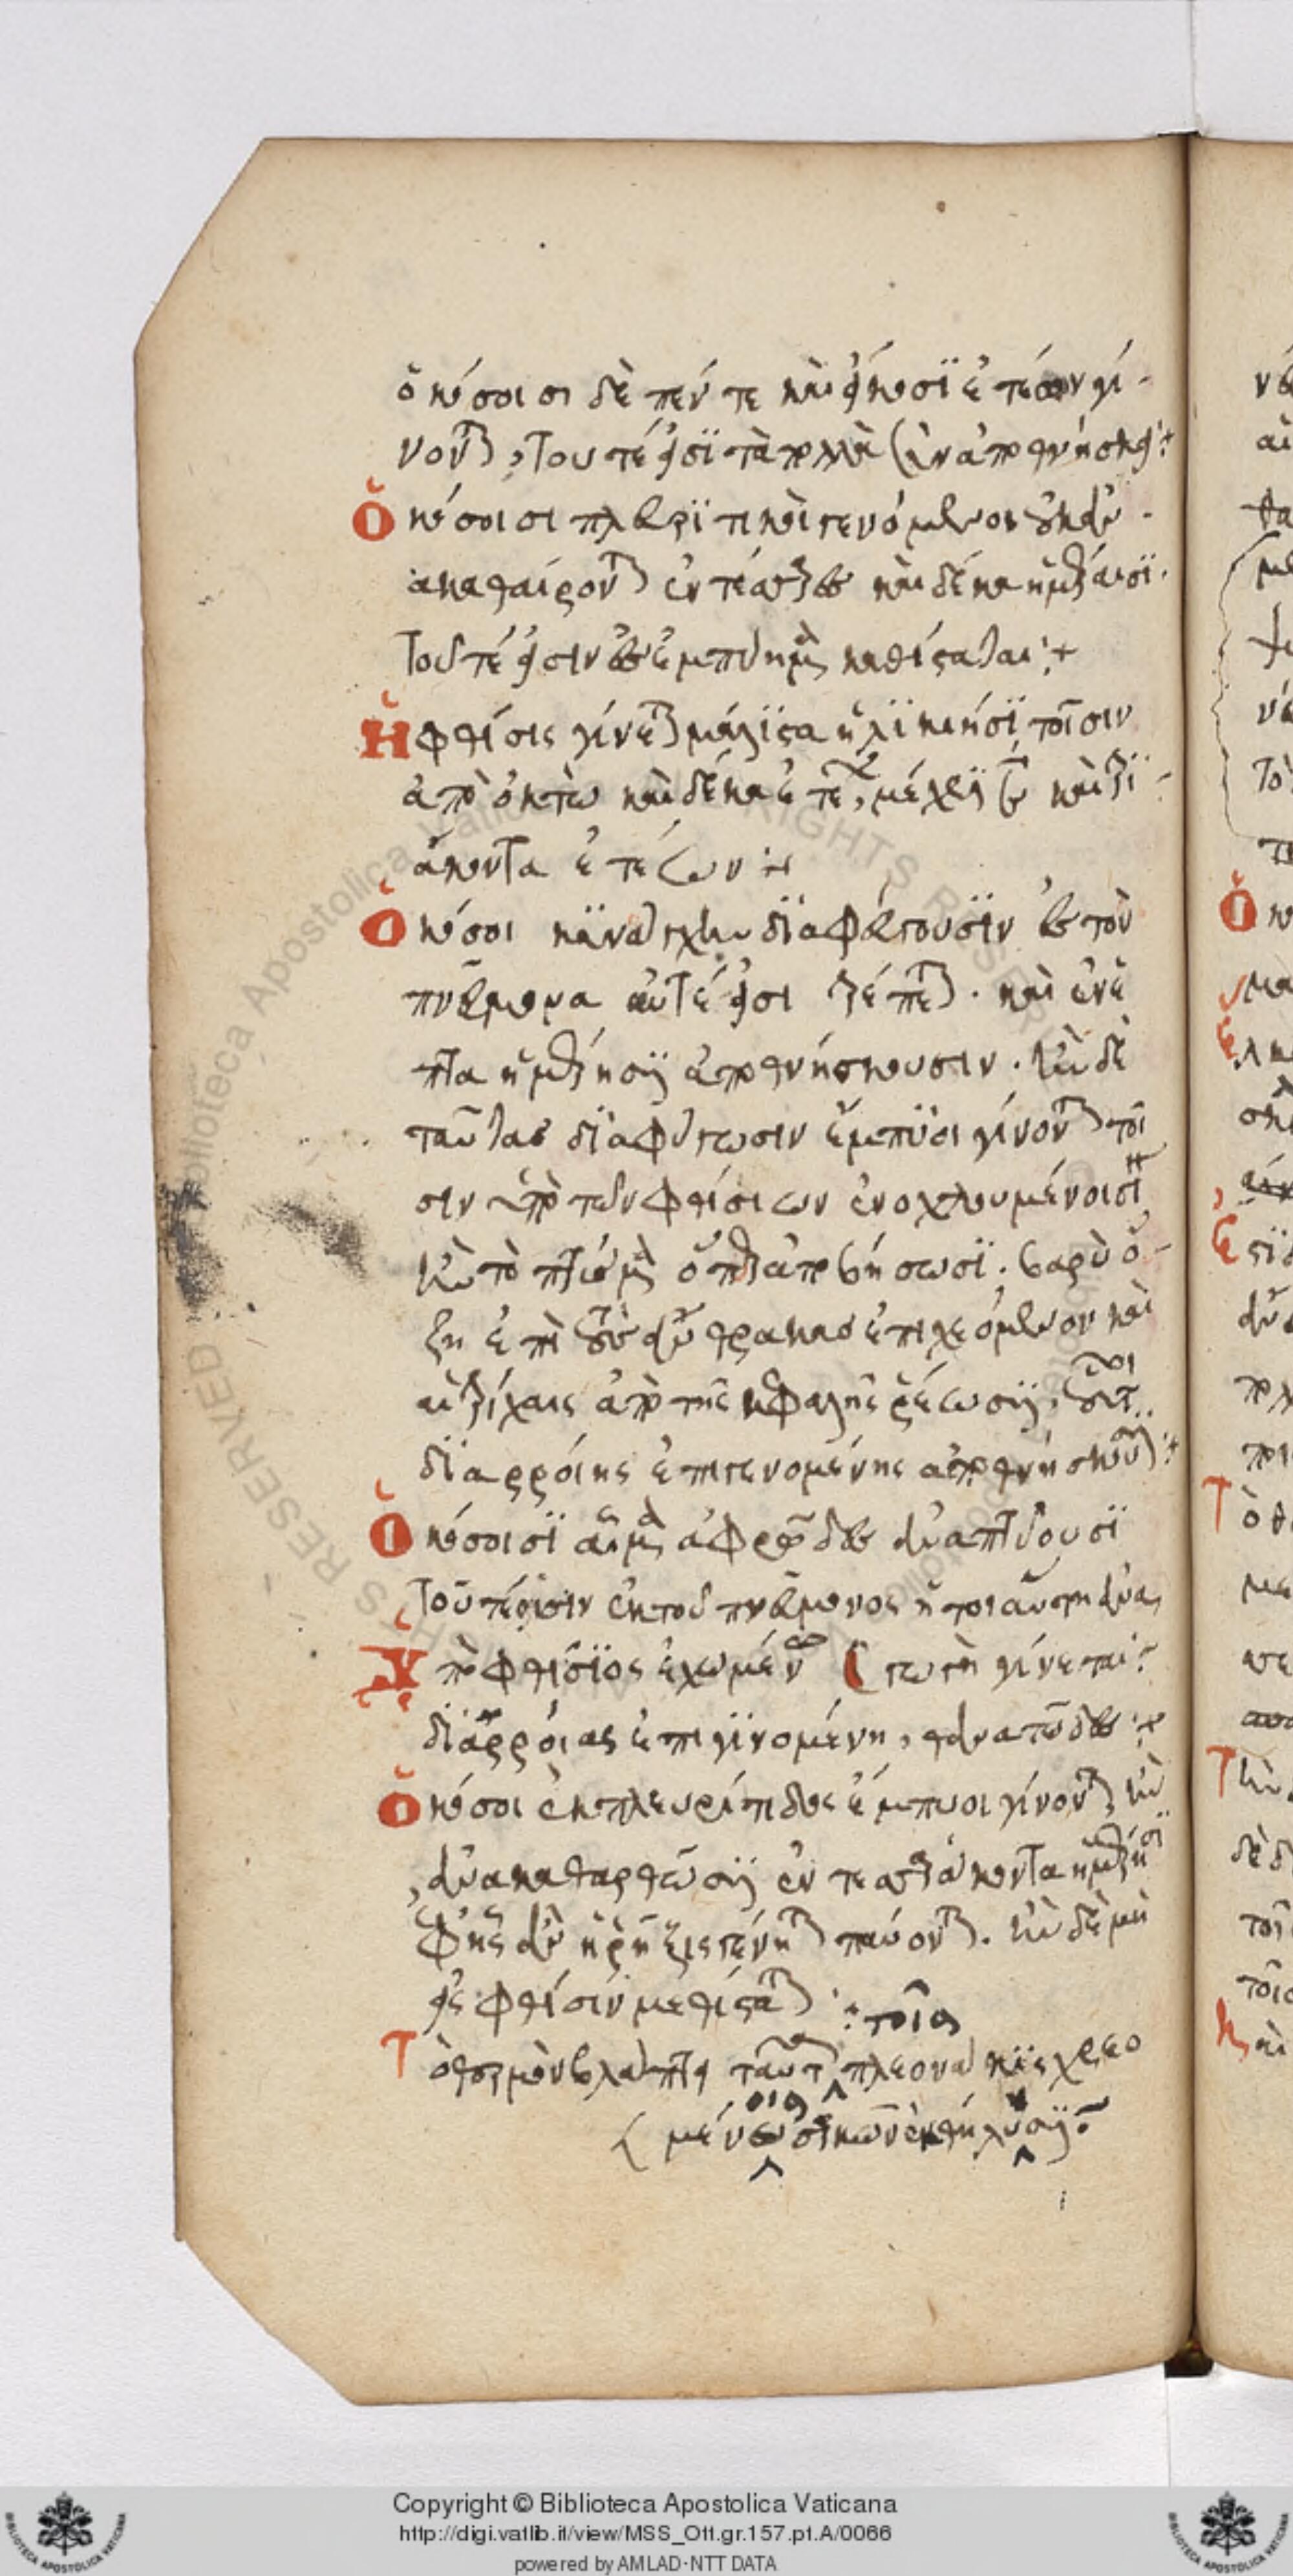 ὁκόσοισι δὲ πέντε καὶ εἴκοσϊ ἐτέων γί-
νονται, τουτέοισϊ τὰ πολλὰ ἀναποθνήσκει :+
Ὁκόσοισι πλευρϊτικοὶ γενόμενοι οὐκ ἀν
ακαθαίρονται ἐν τέσσαρσι καὶ δέκα ἡμέραισϊ.
τουτέοισιν ἐς ἐμπύημα καθίσταται :+
Ἡ φθίσις γίνεται μάλϊστα ἡλϊκιήσϊ τοῖσιν
ἀπὸ ὀκτὼ καὶ δέκα ἐτέων, μέχρϊ καὶ τρϊ-
άκοντα ἐτέων :+
Ὁκόσοι κϋνάγχην δϊαφεύγουσϊν ἐς τὸν
πνεύμονα αὐτέοισι τρέπεται. καὶ ἐν ἑ
πτὰ ἡμέρησϊν ἀποθνήσκουσιν. ἢν δὲ
ταύτας δϊαφύγωσιν ἔμπϋοι γίνονται τοῖ
σιν ὑπὸ τῶν φθίσιων ἐνοχλουμένοισϊν
ἢν τὸ πτύσμα ὅπερ ἀποβήσσωσϊ. βαρὺ ὄ-
ζη ἐπὶ τοὺς ἄνθρακας ἐπιχεόμενον καὶ
αἱ τρίχαις ἀπὸ τῆς κεφαλῆς ῥέωσϊν,
δϊαρροίης ἐπιγενομένης ἀποθνήσκουσιν :+
Ὁκόσοισϊ αἷμα ἀφρῶδες ἀναπτύουσϊ
τουτέοισιν ἐκ τοῦ πνεύμονος ἡ τοιαύτη ἀνα
Ὑπὸ φθίσϊος ἐχωμένω γωγὴ γίνεται :
δϊάρροιας ἐπιγϊνομένη, θανατῶδες :+
Ὁκόσοι ἐκ πλευρίτιδος ἔμπυοι γίνονται, ἢν
ἀνακαθαρθῶσϊν ἐν τεσσαράκοντα ἡμέρησϊ
ἀφ' ἧς ἂν ἡ ῥῆξις γένηται παύονται. ἢν δὲ μὴ
ἐς φθίσϊν μεθίσταται :
τοῖσ
Τὸ θερμὸν βλάπτει ταῦτα πλεονάκϊς χρεο
μένοισϊ σαρκῶν ἐκθήλυσϊν :
Copyright © Biblioteca Apostolica Vaticana
http://digi.vatlib.it/view/MSS_Ott.gr.157.pt.A/0066
powered by AMLAD-NTT DATA